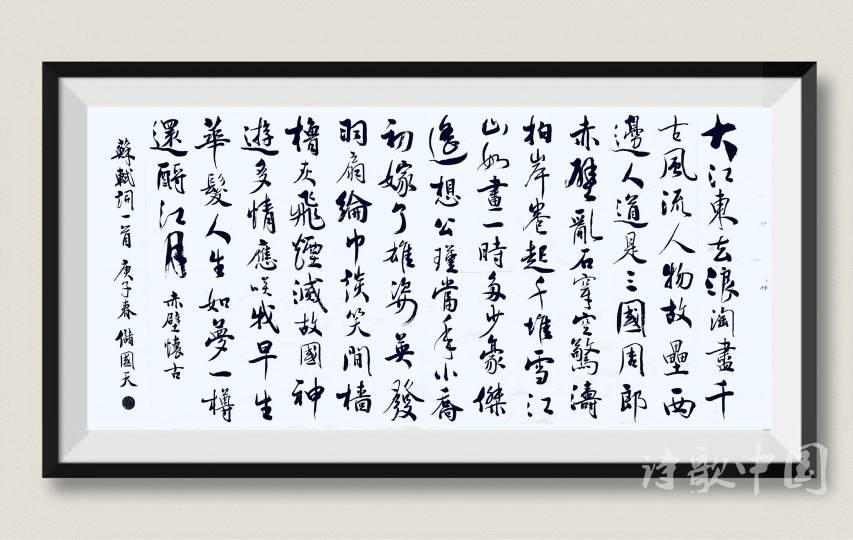 大江東去浪淘盡千
古風流人物故壘西
邊人道是三國周郎
赤壁亂石穿空驚濤
拍岸卷起千堆雪江
山如畫一時多少豪傑
遙想公瑾當年小喬
初嫁了雄姿英發
羽扇綸巾談笑間檣
櫓灰飛煙滅故國神
遊多情應笑我早生
華髮人生如夢一樽
還酹江月 赤壁懷古
蘇軾詞一首 庚子春 儲國天
诗歌中国